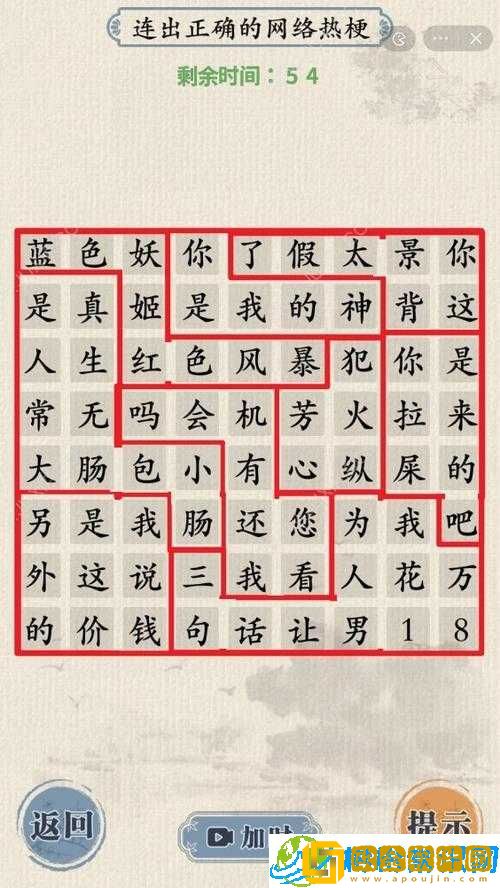 连出正确的网络热梗
剩余时间：54
蓝色妖你了假太景你
是真姬是我的神背这
人生红色风暴犯你是
常无吗会机芳火拉来
大肠包小有心纵屎的
另是我肠还您为我吧
外这说三我看人花万
的价钱句话让男18
返回
加时
提示
www.apoujin.com